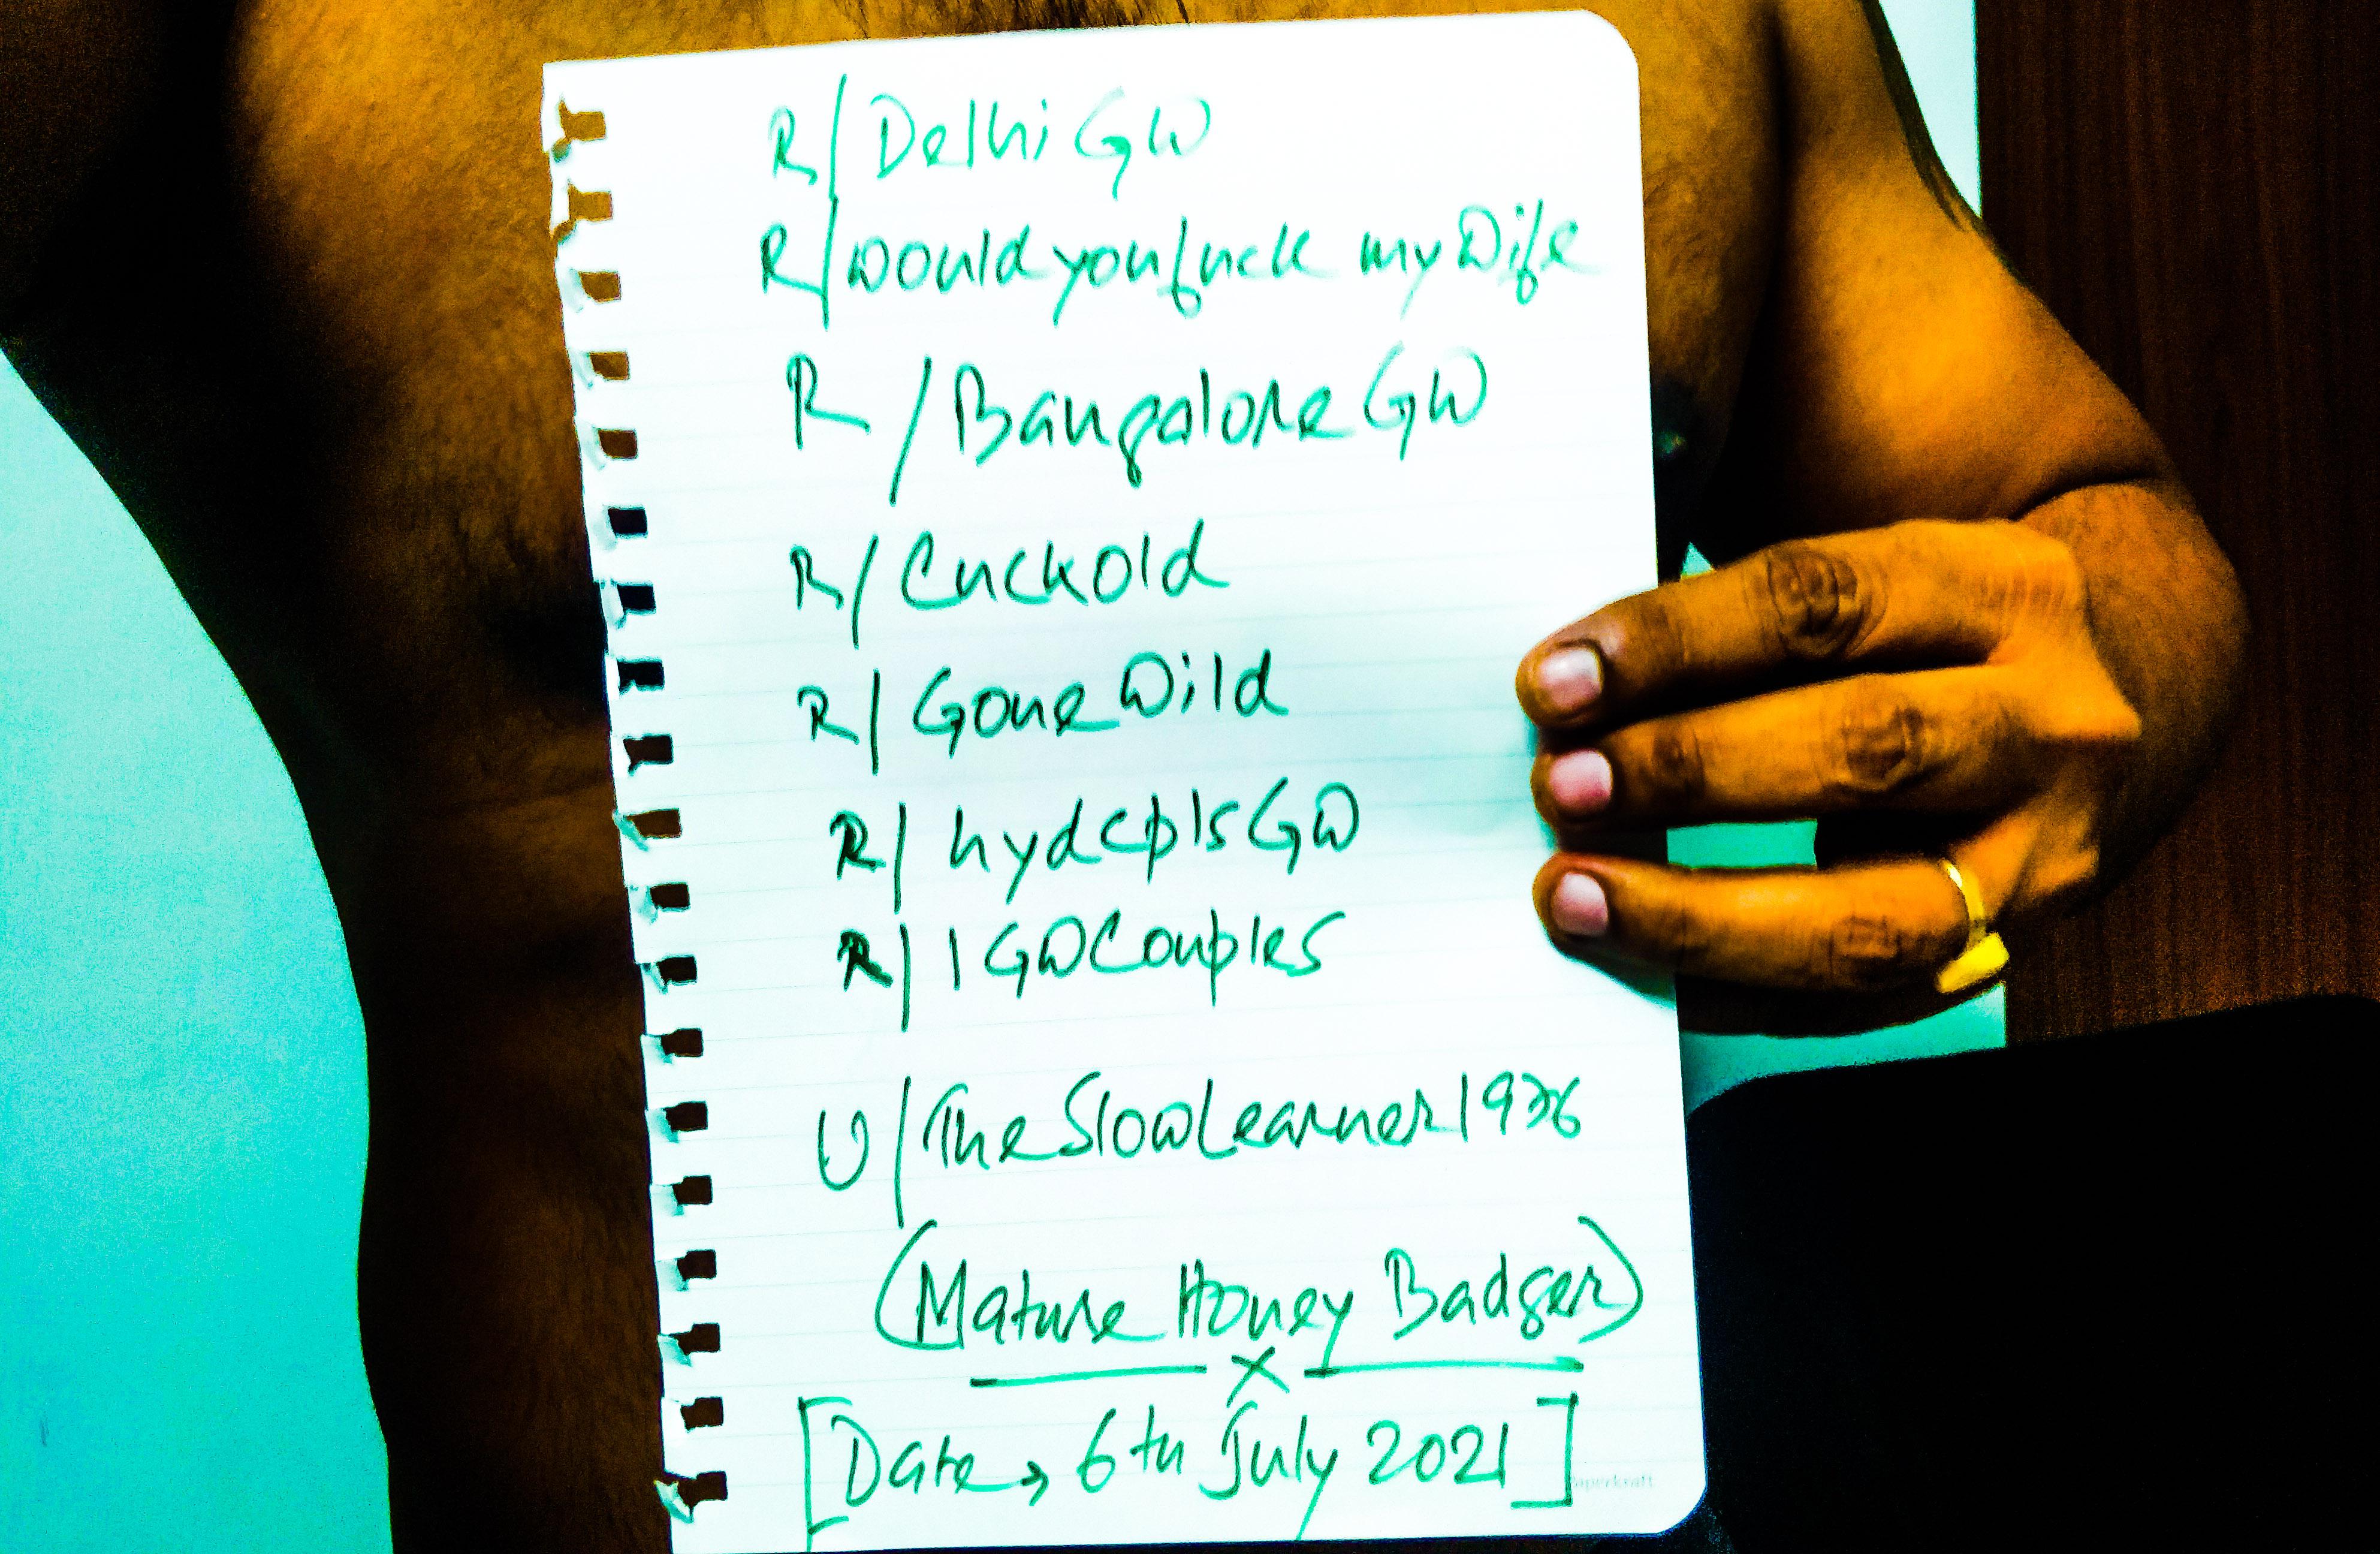 R/DelhiGW
R/wouldyoufuck myWife
R/BangaloreGW
R/Cuckold
R/GoneWild
R/hydcplsGW
R/IGWCouples
U/TheSlowLearner1976
(Mature Honey Badger)
x
[Date → 6th July 2021]
Paperkraft